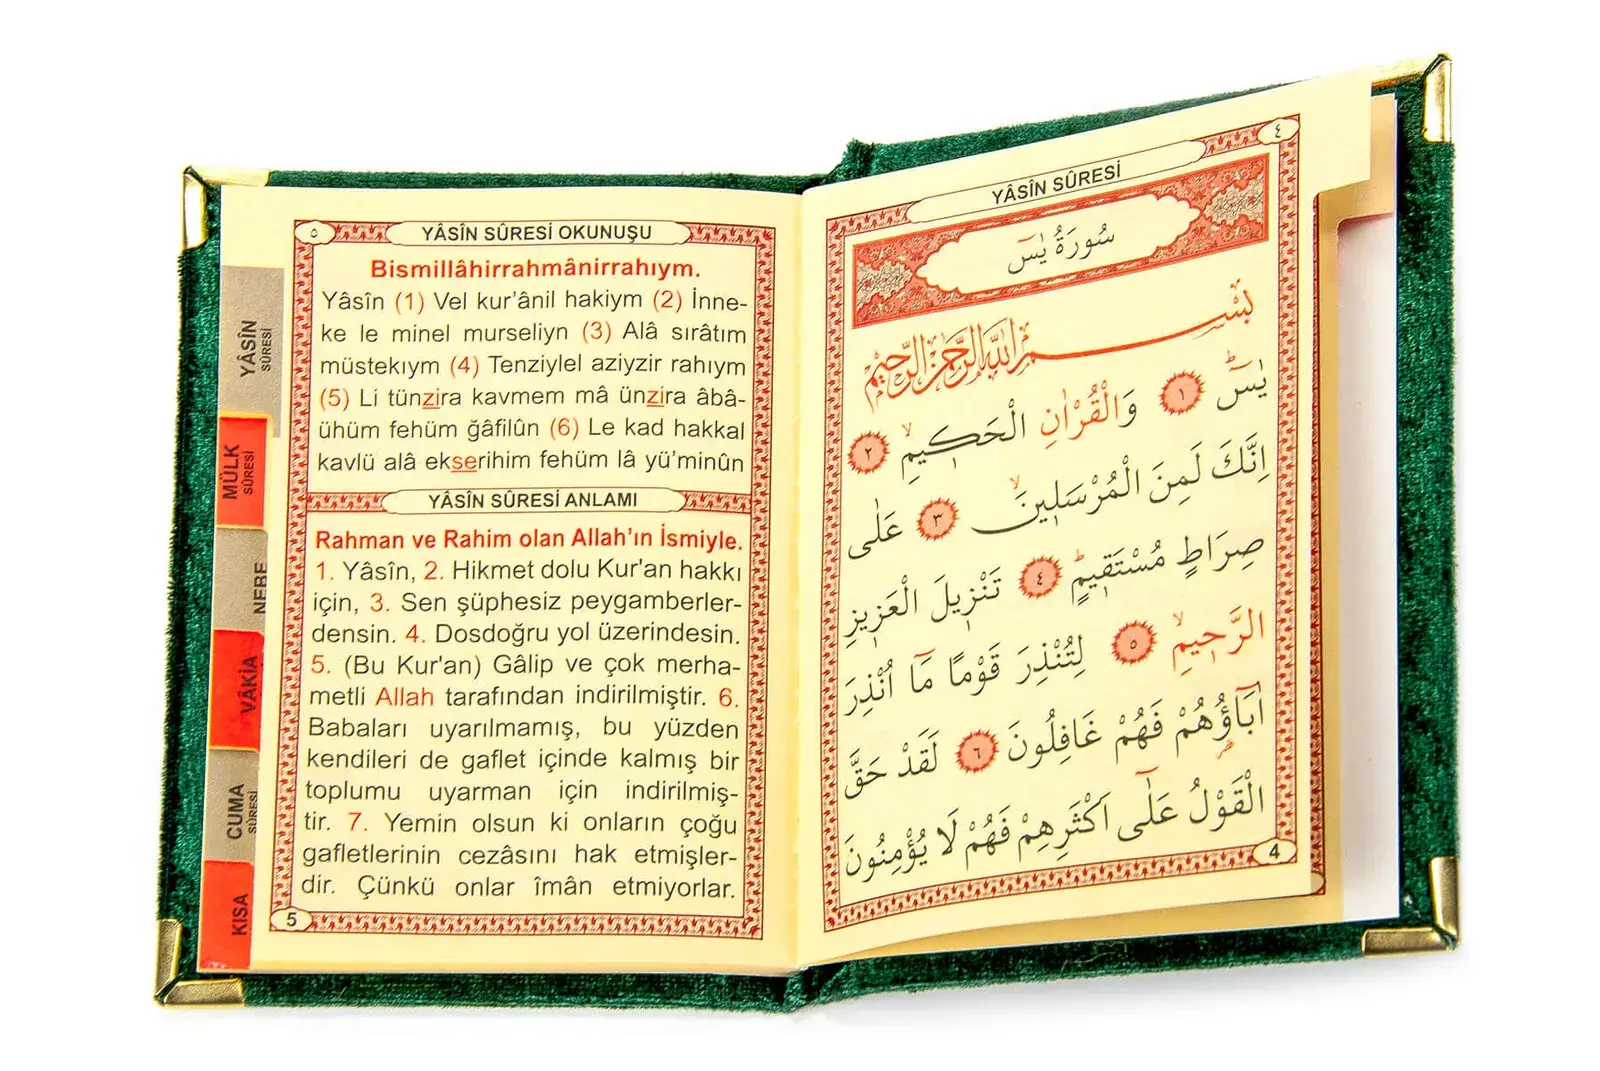 YÂSÎN SÛRESİ
MÜLK SÛRESİ
NEBE
VÂKİA
CUMA SÛRESİ
KISA
٥
YÂSÎN SÛRESİ OKUNUŞU
Bismillâhirrahmânirrahıym.
Yâsîn (1) Vel kur’ânil hakiym (2) İnne-
ke le minel murseliyn (3) Alâ sırâtım
müstekıym (4) Tenziylel aziyzir rahıym
(5) Li tünzira kavmem mâ ünzira âbâ-
ühüm fehüm ğâfilûn (6) Le kad hakkal
kavlü alâ ekserihim fehüm lâ yü’minûn
YÂSÎN SÛRESİ ANLAMI
Rahman ve Rahim olan Allah’ın İsmiyle.
1. Yâsîn, 2. Hikmet dolu Kur'an hakkı
için, 3. Sen şüphesiz peygamberler-
densin. 4. Dosdoğru yol üzerindesin.
5. (Bu Kur'an) Gâlip ve çok merha-
metli Allah tarafından indirilmiştir. 6.
Babaları uyarılmamış, bu yüzden
kendileri de gaflet içinde kalmış bir
toplumu uyarman için indirilmiş-
tir. 7. Yemin olsun ki onların çoğu
gafletlerinin cezâsını hak etmişler-
dir. Çünkü onlar îmân etmiyorlar.
5
٤
YÂSÎN SÛRESİ
سُورَةُ يٰسٓ
بِسْمِ اللّٰهِ الرَّحْمٰنِ الرَّحِيمِ
يٰسٓ ۚ ١ وَالْقُرْاٰنِ الْحَكٖيمِۙ ٢
اِنَّكَ لَمِنَ الْمُرْسَلٖينَۙ ٣ عَلٰى
صِرَاطٍ مُسْتَقٖيمٍۜ ٤ تَنْزٖيلَ الْعَزٖيزِ
الرَّحٖيمِۙ ٥ لِتُنْذِرَ قَوْمًا مَٓا اُنْذِرَ
اٰبَٓاؤُ۬هُمْ فَهُمْ غَافِلُونَ ٦ لَقَدْ حَقَّ
الْقَوْلُ عَلٰٓى اَكْثَرِهِمْ فَهُمْ لَا يُؤْمِنُونَ
4